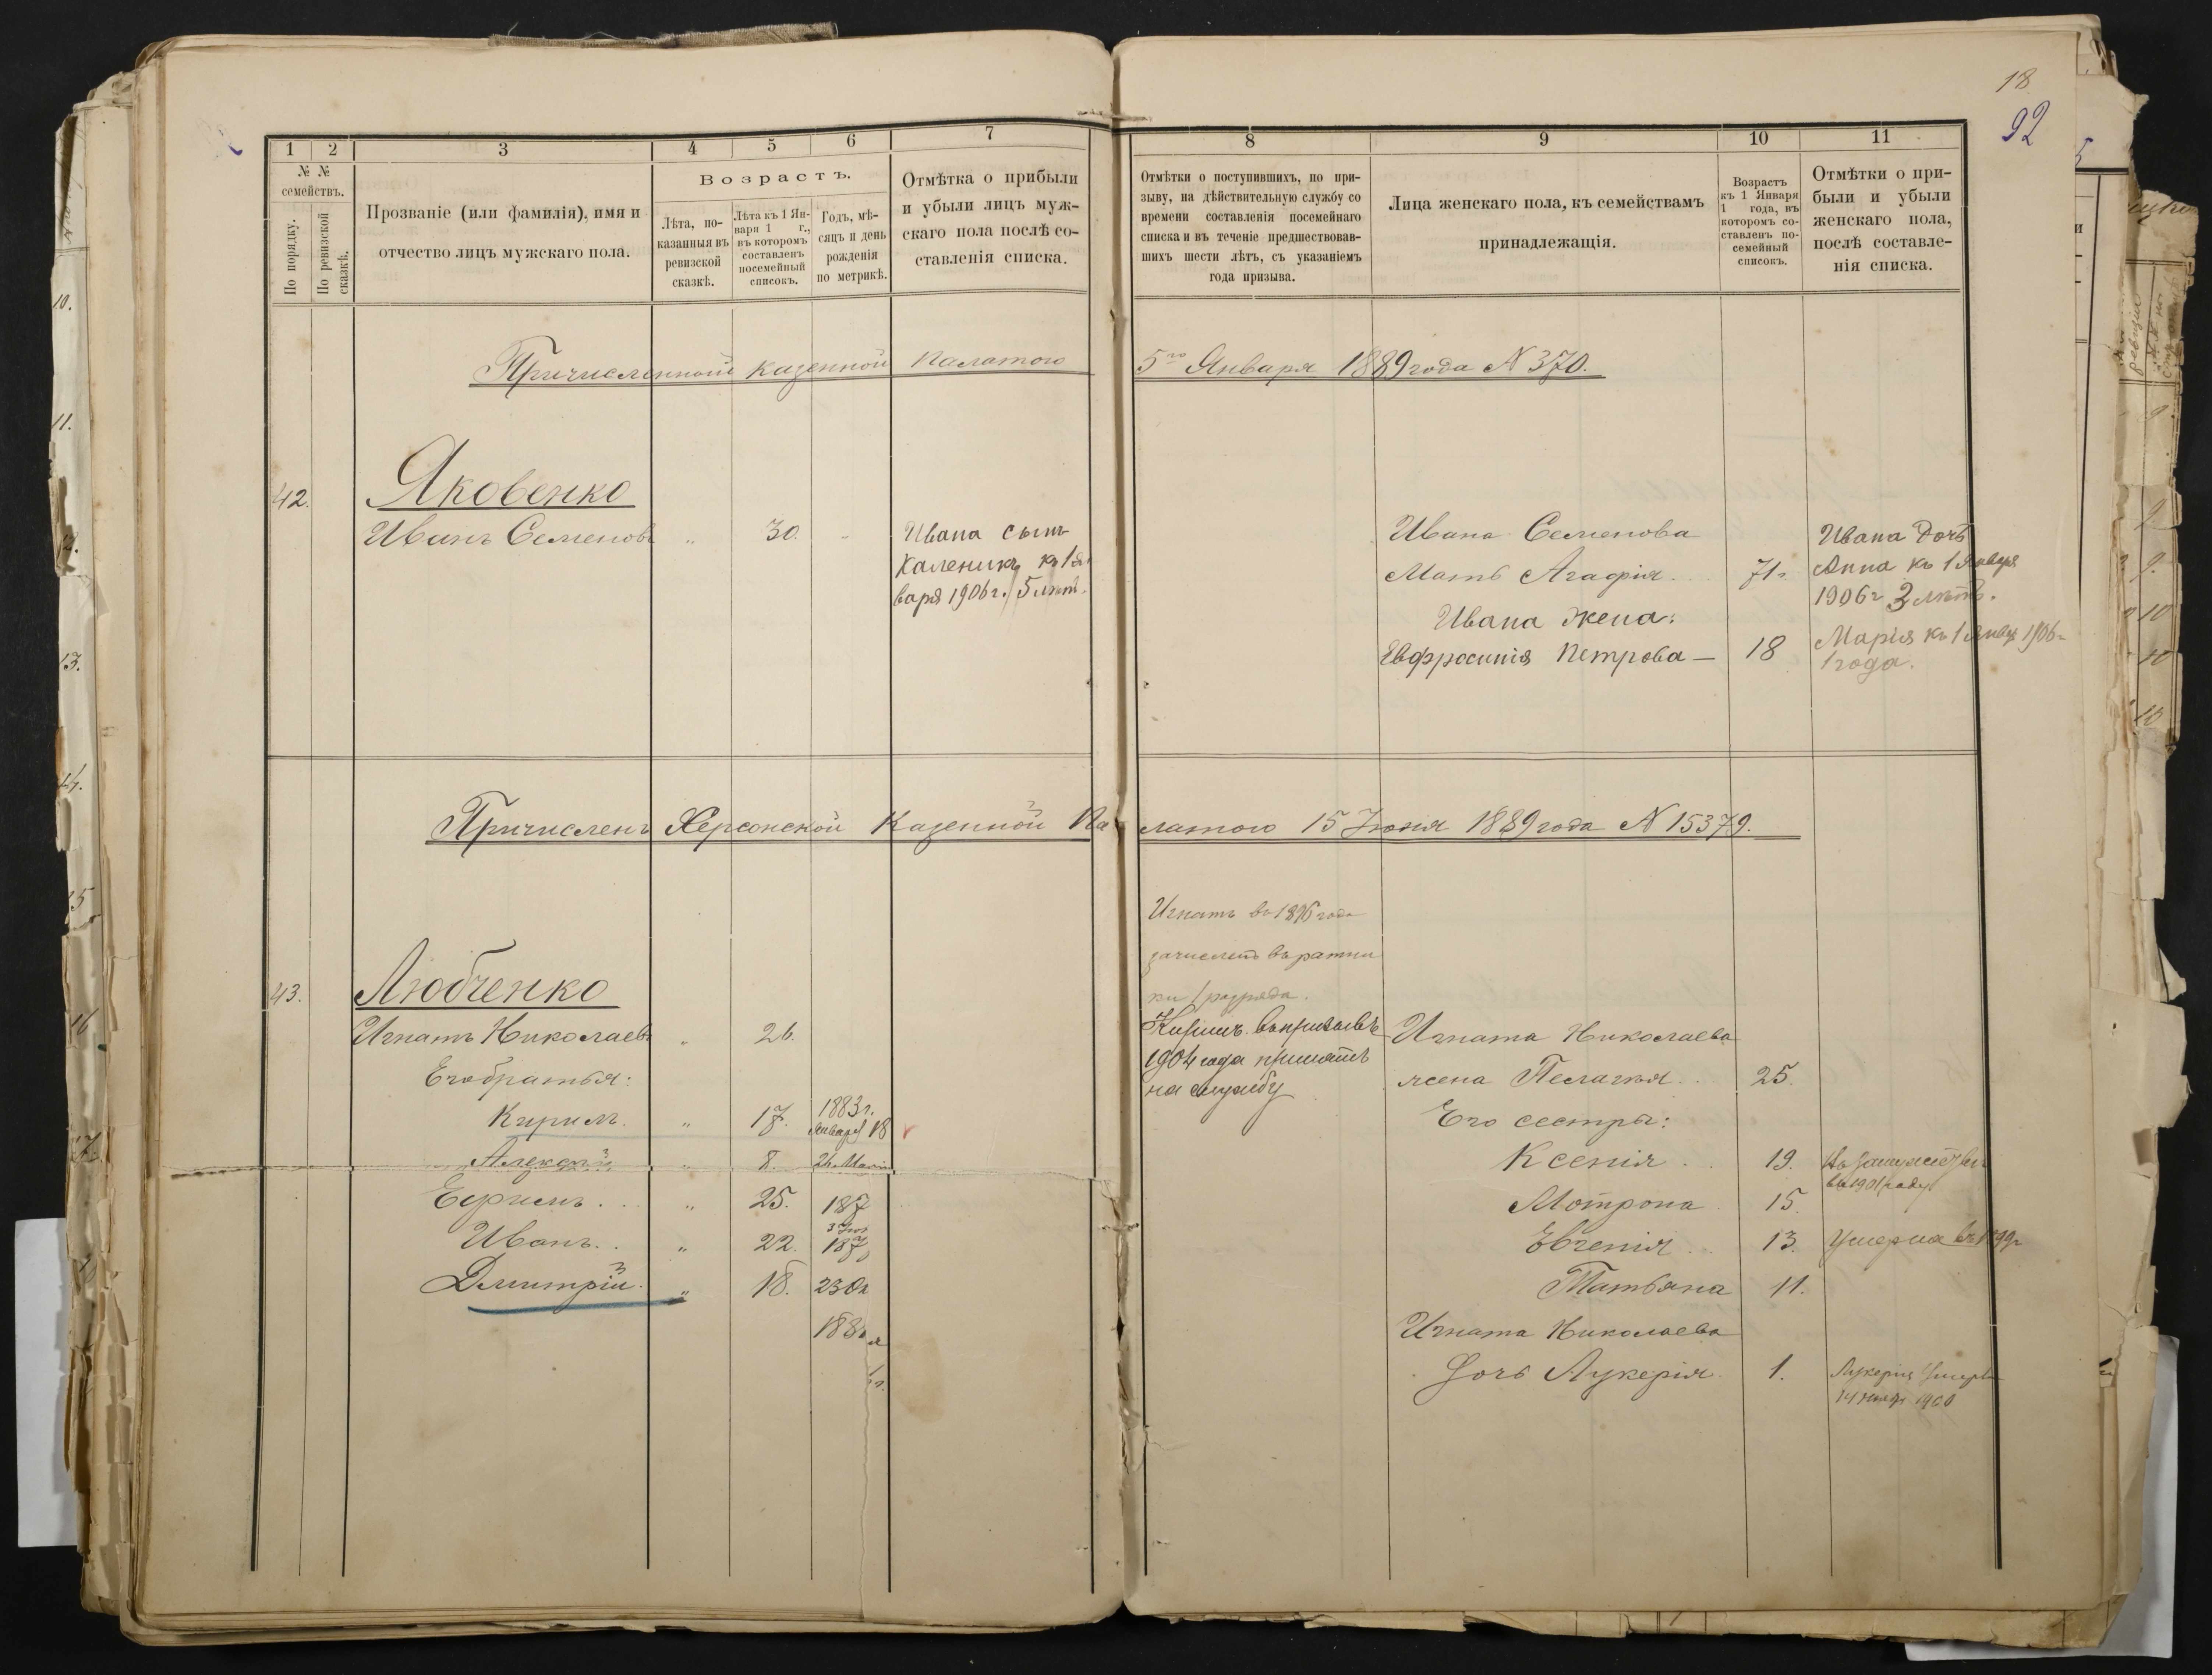 18
92
1 2 3 4 5 6 7
№ №
семействъ.
По порядку.
По ревизской
сказкѣ.
Прозваніе (или фамилія), имя и
отчество лицъ мужскаго пола.
Возрастъ.
Лѣта, по-
казанныя въ
ревизской
сказкѣ.
Лѣта къ 1 Ян-
варя 1 г.,
въ которомъ
составленъ
посемейный
списокъ.
Годъ, мѣ-
сяцъ и день
рожденія
по метрикѣ.
Отмѣтка о прибыли
и убыли лицъ муж-
скаго пола послѣ со-
ставленія списка.
8 9 10 11
Отмѣтки о поступившихъ, по при-
зыву, на дѣйствительную службу со
времени составленія посемейнаго
списка и въ теченіе предшествовав-
шихъ шести лѣтъ, съ указаніемъ
года призыва.
Лица женскаго пола, къ семействамъ
принадлежащія.
Возрастъ
къ 1 Января
1 года, въ
которомъ со-
ставленъ по-
семейный
списокъ.
Отмѣтки о при-
были и убыли
женскаго пола,
послѣ составле-
нія списка.
Причисленной казенной Палатою 5го Января 1889 года № 370.
42. Яковенко
Иванъ Семеновъ " 30. "
Ивана сынъ
Каленикъ къ 1 Ян
варя 1906 г. 5 лѣтъ.
Ивана Семенова
Мать Агафія . 71 г.
Ивана жена:
Евфросинія Петрова — 18
Ивана дочь
Анна къ 1 Января
1906 г 3 лѣтъ.
Марія къ 1 Янвр 1906 г
1 года.
Причисленъ Херсонской Казенной Па латою 15 Іюня 1889 года № 15379.
43. Любченко
Игнатъ Николаевъ " 26.
Его братья:
Кирилъ. " 17. 1883 г.
Января 18
Алексѣй " 8. 24 Мая
Ефимъ . . . " 25. 187
Иванъ . . " 22. 187
Дмитрій . " 18. 23 Ок
188
Игнатъ въ 1896 года
зачисленъ въ ратни
ки 1 разряда.
Кирилъ въ призывѣ
1904 года принятъ
на службу
Игната Николаева
жена Пелагія . . 25.
Его сестры:
Ксенія . . 19. Въ замужествѣ
въ 1901 году
Мотрона . 15.
Евгенія . . 13. Умерла въ 1899 г
Татьяна 11.
Игната Николаева
дочь Лукерія . 1. Лукерія умерла
14 1900